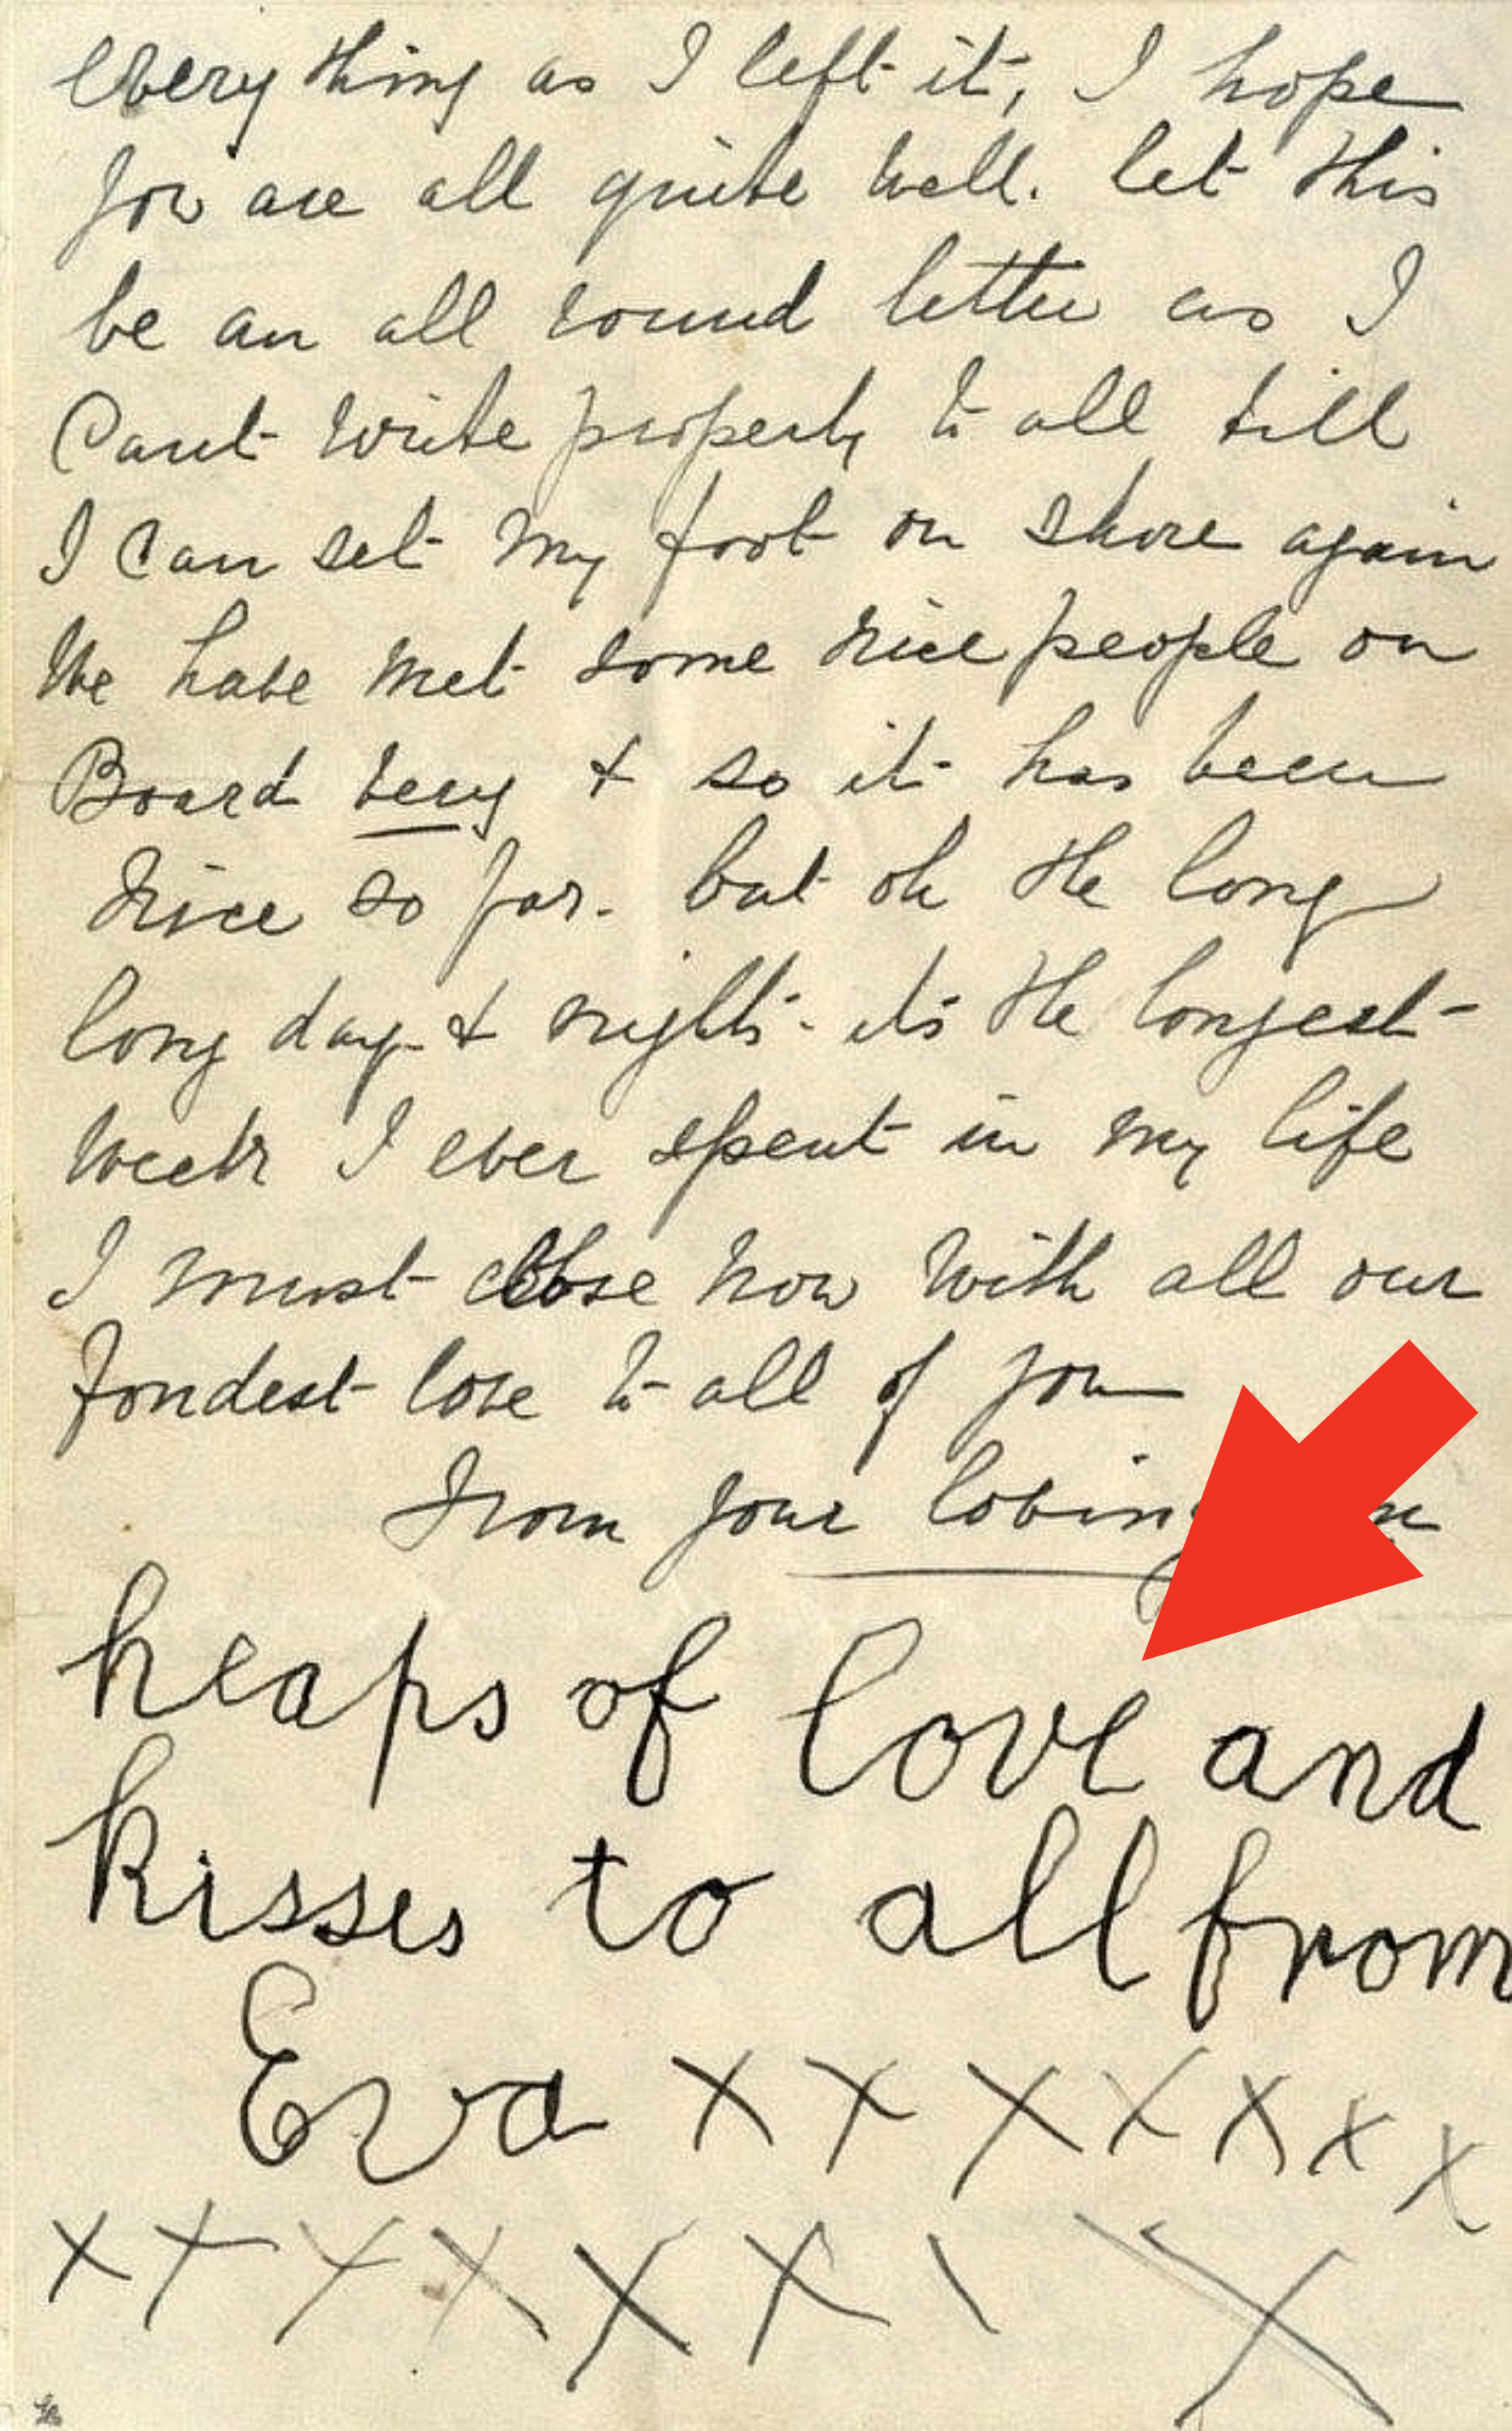 everything as I left it, I hope
you are all quite well. let this
be an all round letter as I
Cant write properly to all till
I can set my foot on shore again
We have met some nice people on
Board very & so it has been
nice so far. but oh the long
long days & nights. its the longest
Week I ever spent in my life
I must close now with all our
fondest love to all of you
From your loving
heaps of love and
kisses to all from
Eva x x x x x x x
x x x x x x \ x